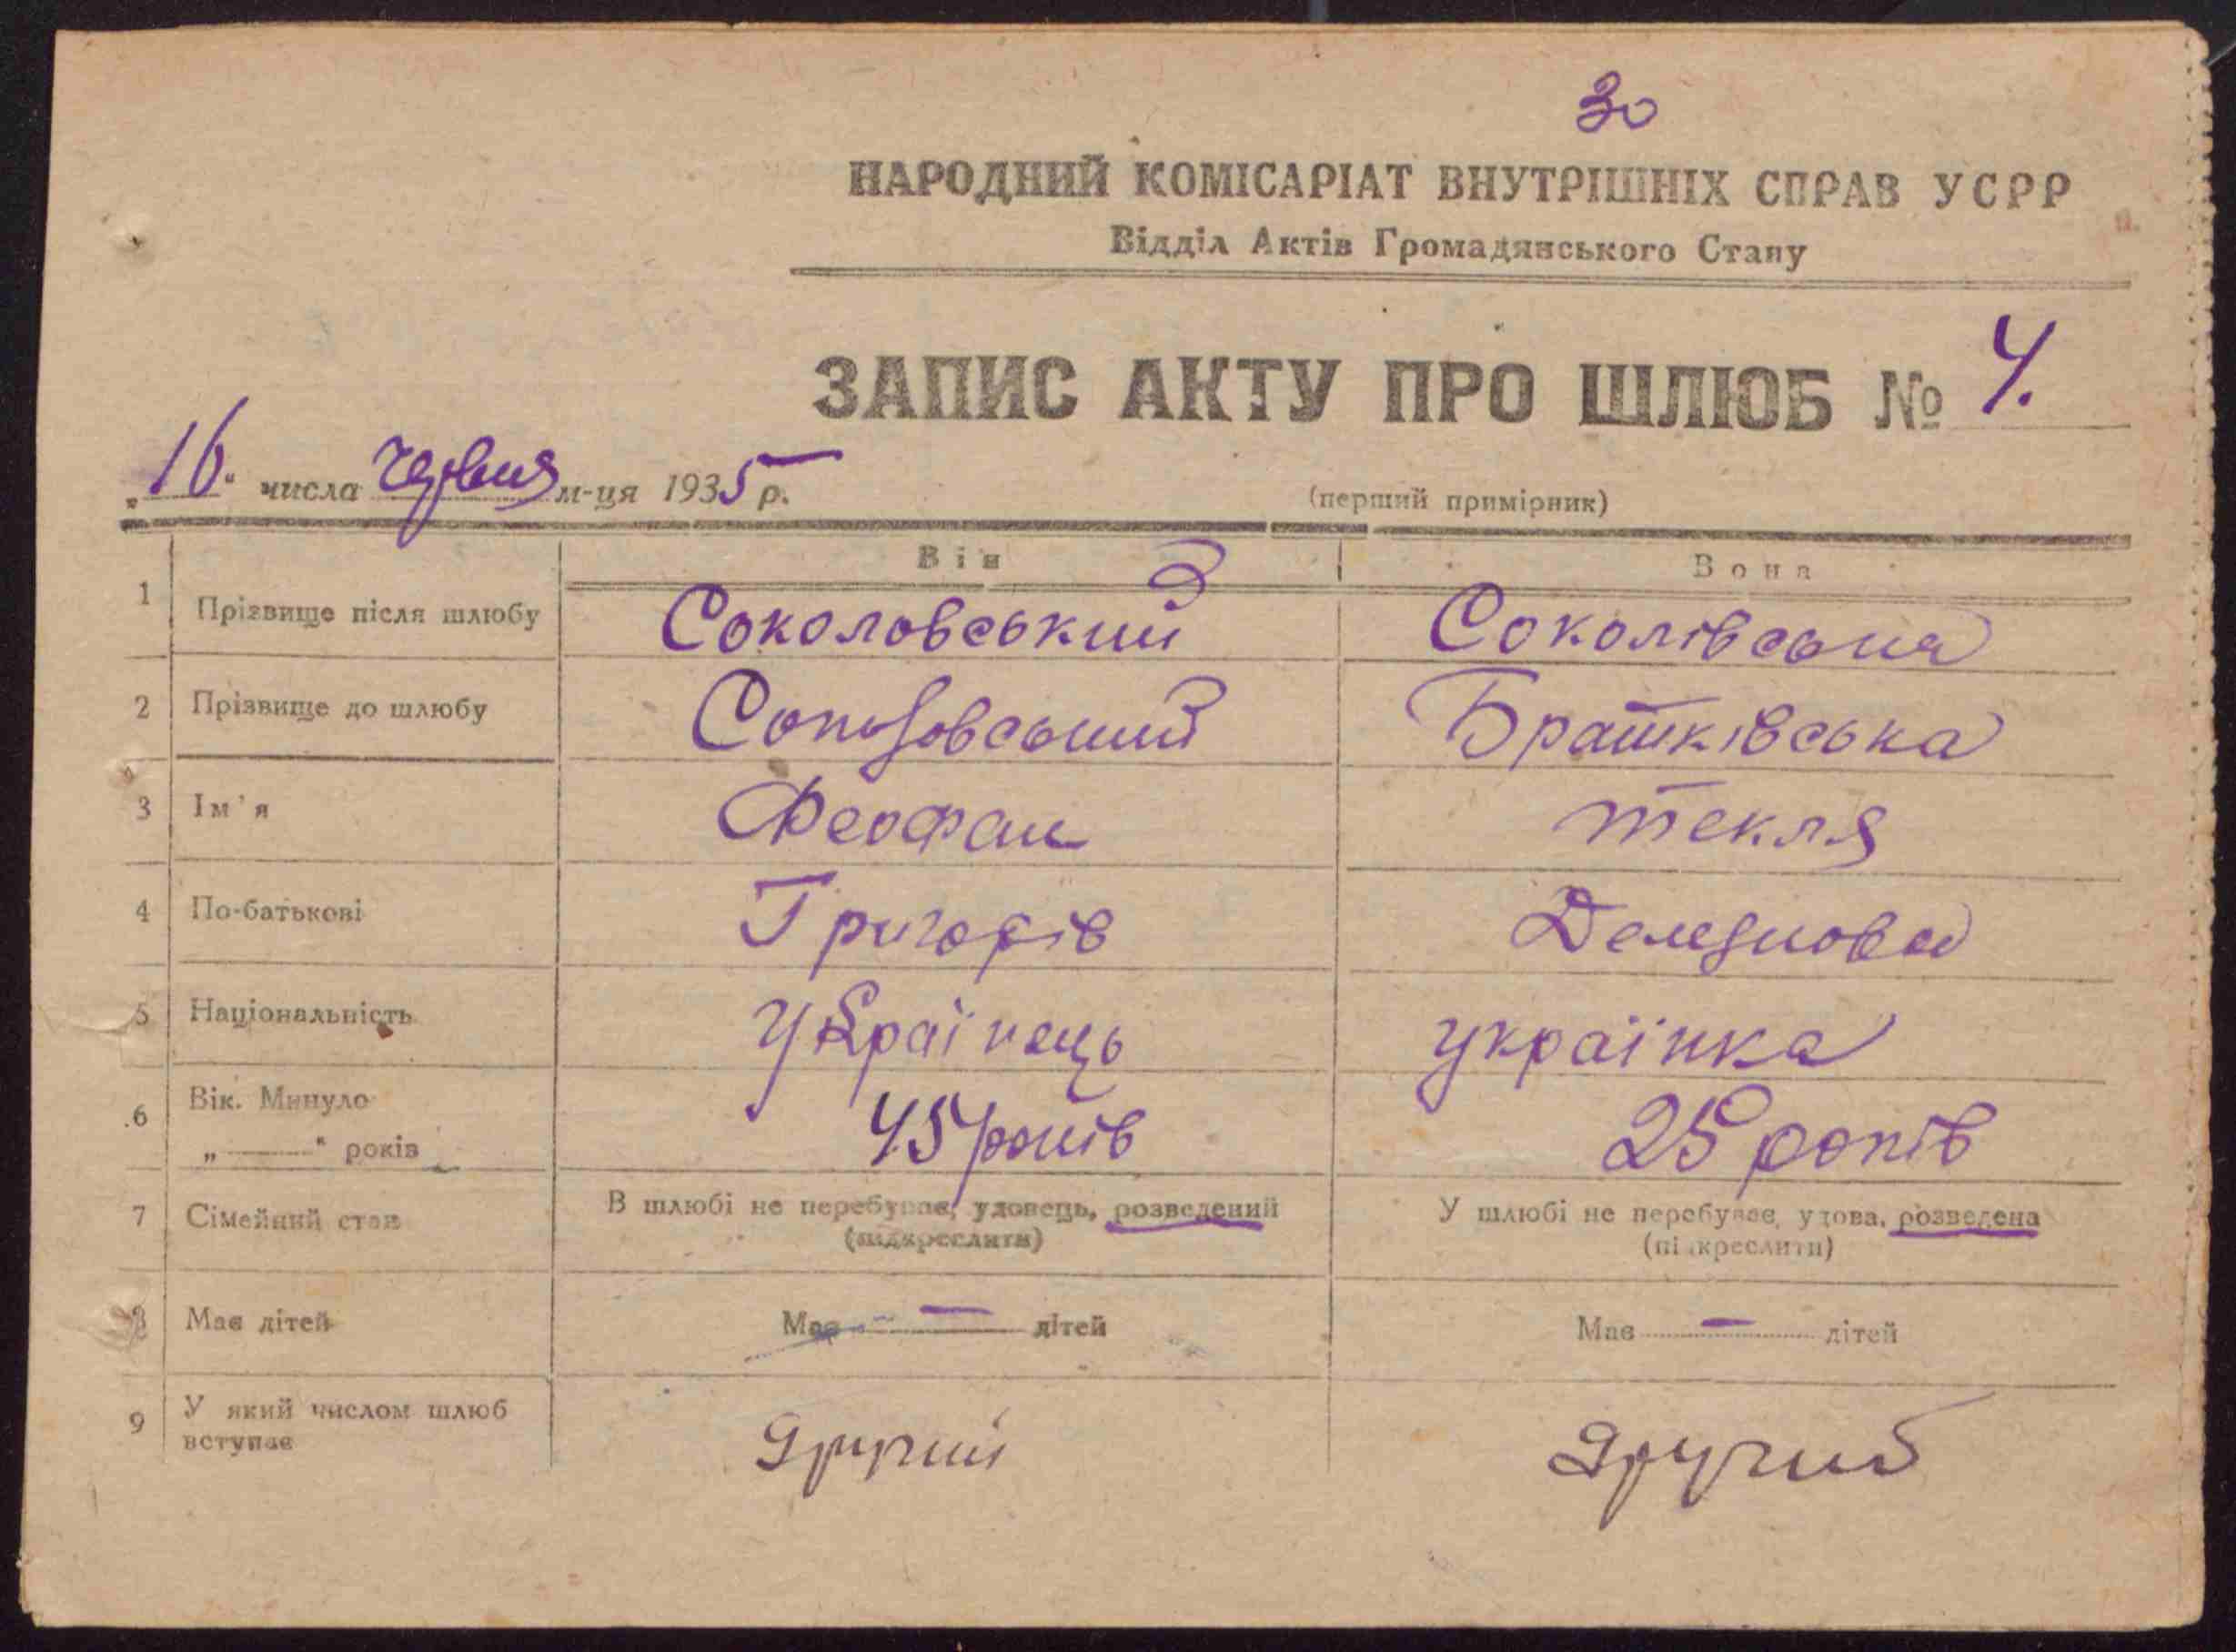 30
НАРОДНИЙ КОМІСАРІАТ ВНУТРІШНІХ СПРАВ УСРР
Відділ Актів Громадянського Стану
ЗАПИС АКТУ ПРО ШЛЮБ № 4.
„16.“ числа червня м-ця 1935 р.
(перший примірник)
Він Вона
1 Прізвище після шлюбу Соколовський Соколівська
2 Прізвище до шлюбу Братківська
3 Ім'я Феофан Текля
4 По-батькові Григорів
5 Національність Українець українка
6 Вік. Минуло „——“ років 45 років 25 років
7 Сімейний стан В шлюбі не перебуває, удовець, розведений (підкреслити) У шлюбі не перебуває, удова, розведена (підкреслити)
8 Має дітей Має — дітей Має — дітей
9 У який числом шлюб вступає другий другий